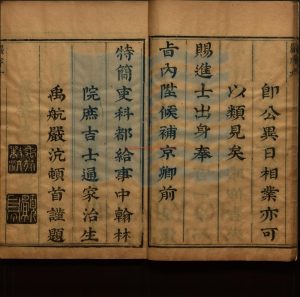 即公異日相業亦可
以類見矣
賜進士出身奉
旨內陞候補京卿前
特簡吏科都給事中翰林
院庶吉士通家治生
禹航嚴沆頓首謹題